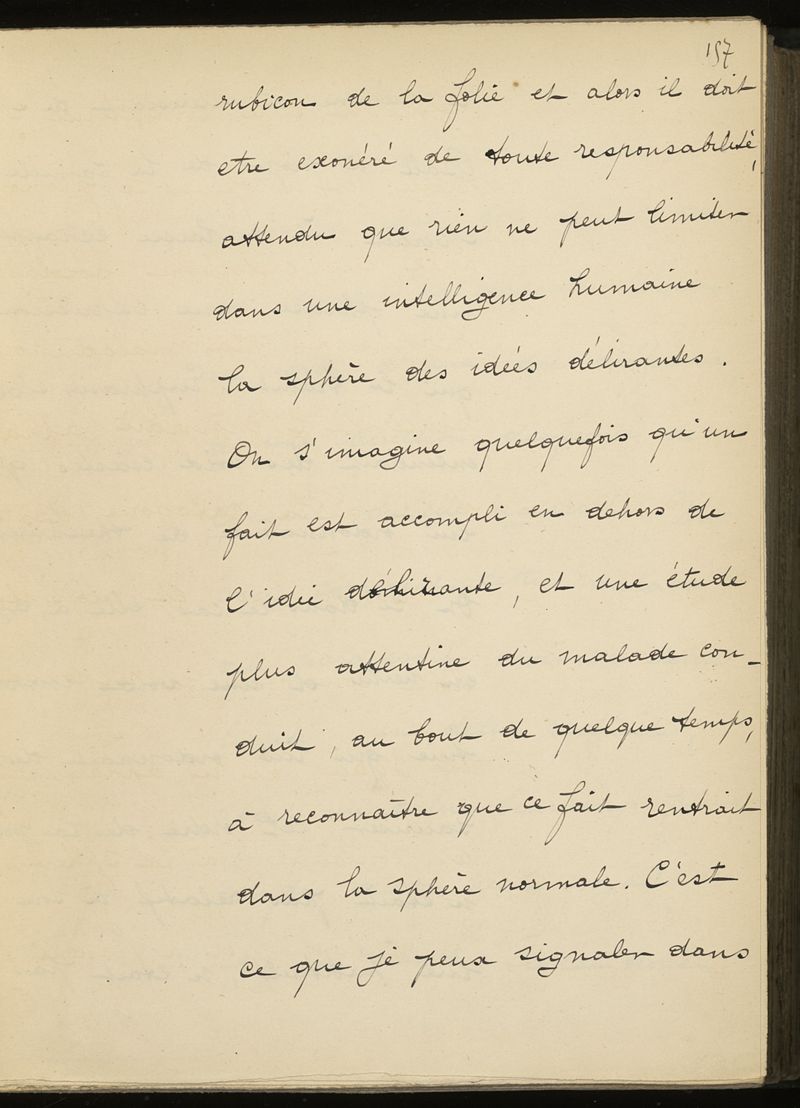 157
rubicon de la folie et alors il doit
etre exonéré de toute responsabilité,
attendu que rien ne peut limiter
dans une intelligence humaine
la sphère des idées délirantes.
On s'imagine quelquefois qu'un
fait est accompli en dehors de
l'idée délirante, et une étude
plus attentive du malade con-
duit, au bout de quelque temps,
à reconnaître que ce fait rentrait
dans la sphère normale. C'est
ce que je peux signaler dans